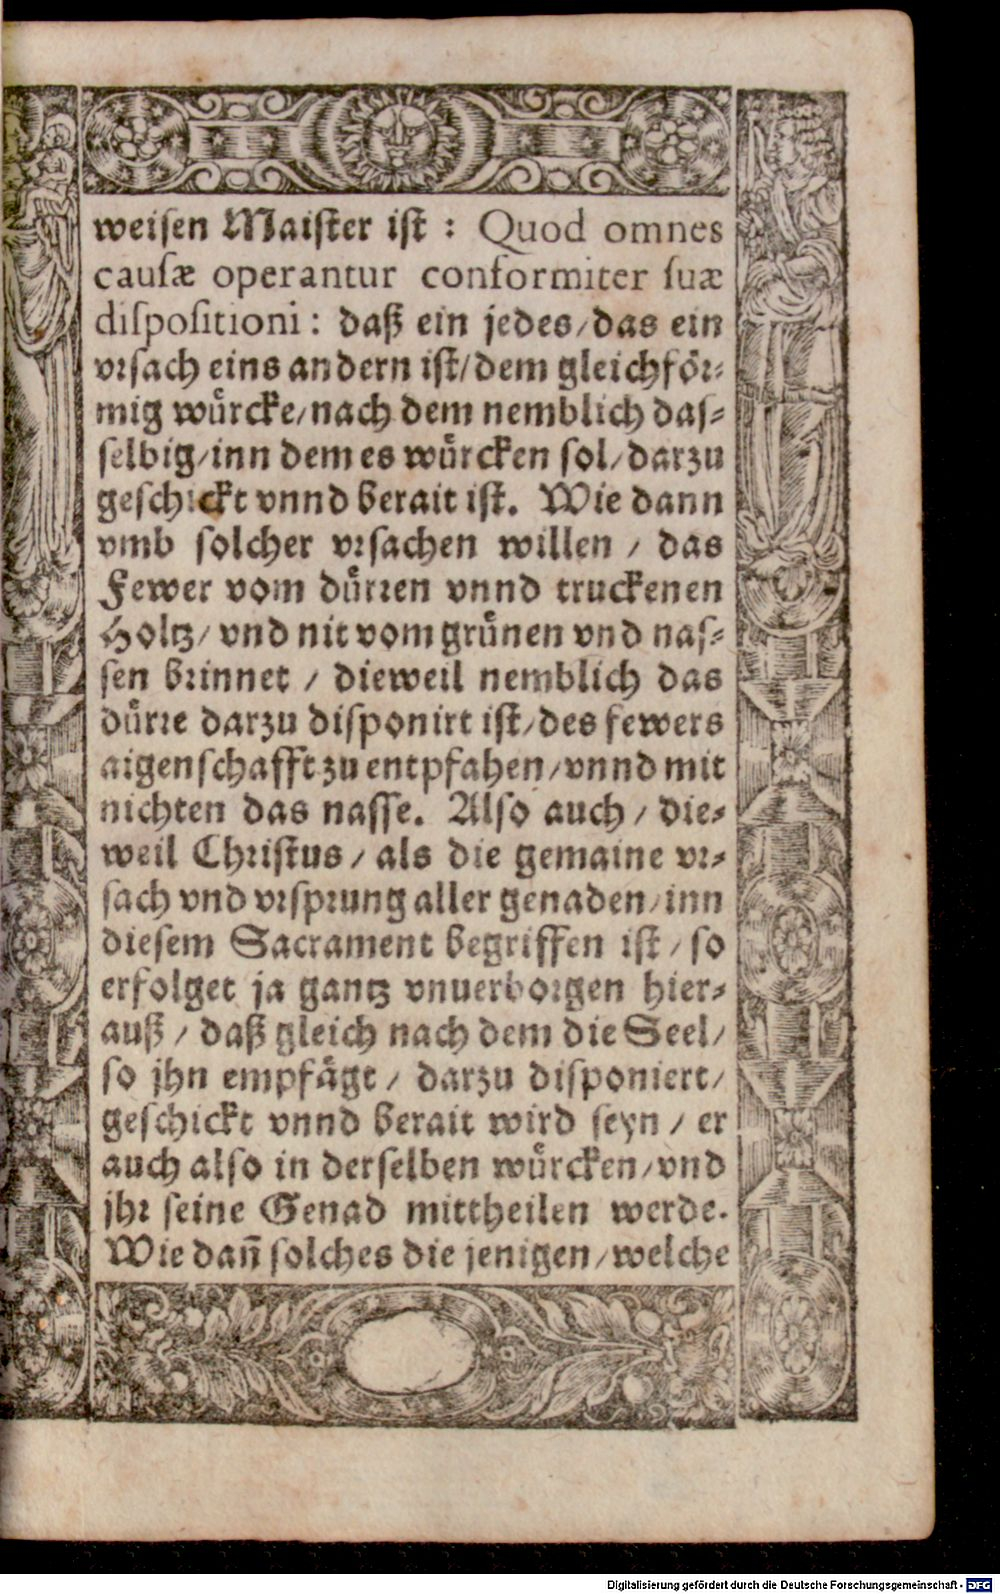 weisen Maister ist : Quod omnes
causæ operantur conformiter suæ
dispositioni : daß ein jedes / das ein
vrsach eins andern ist / dem gleichför⸗
mig wuͤrcke / nach dem nemblich das⸗
selbig / inn dem es wuͤrcken sol / darzu
geschickt vnnd berait ist. Wie dann
vmb solcher vrsachen willen / das
Fewer vom duͤrren vnnd truckenen
Holtz / vnd nit vom gruͤnen vnd nas⸗
sen brinnet / dieweil nemblich das
duͤrre darzu disponirt ist / des fewers
aigenschafft zu entpfahen / vnnd mit
nichten das nasse. Also auch / die⸗
weil Christus / als die gemaine vr⸗
sach vnd vrsprung aller genaden / inn
diesem Sacrament begriffen ist / so
erfolget ja gantz vnuerborgen hier⸗
auß / daß gleich nach dem die Seel /
so jhn empfaͤgt / darzu disponiert /
geschickt vnnd berait wird seyn / er
auch also in derselben wuͤrcken / vnd
jhr seine Genad mittheilen werde.
Wie dañ solches die jenigen / welche
Digitalisierung gefördert durch die Deutsche Forschungsgemeinschaft - DFG